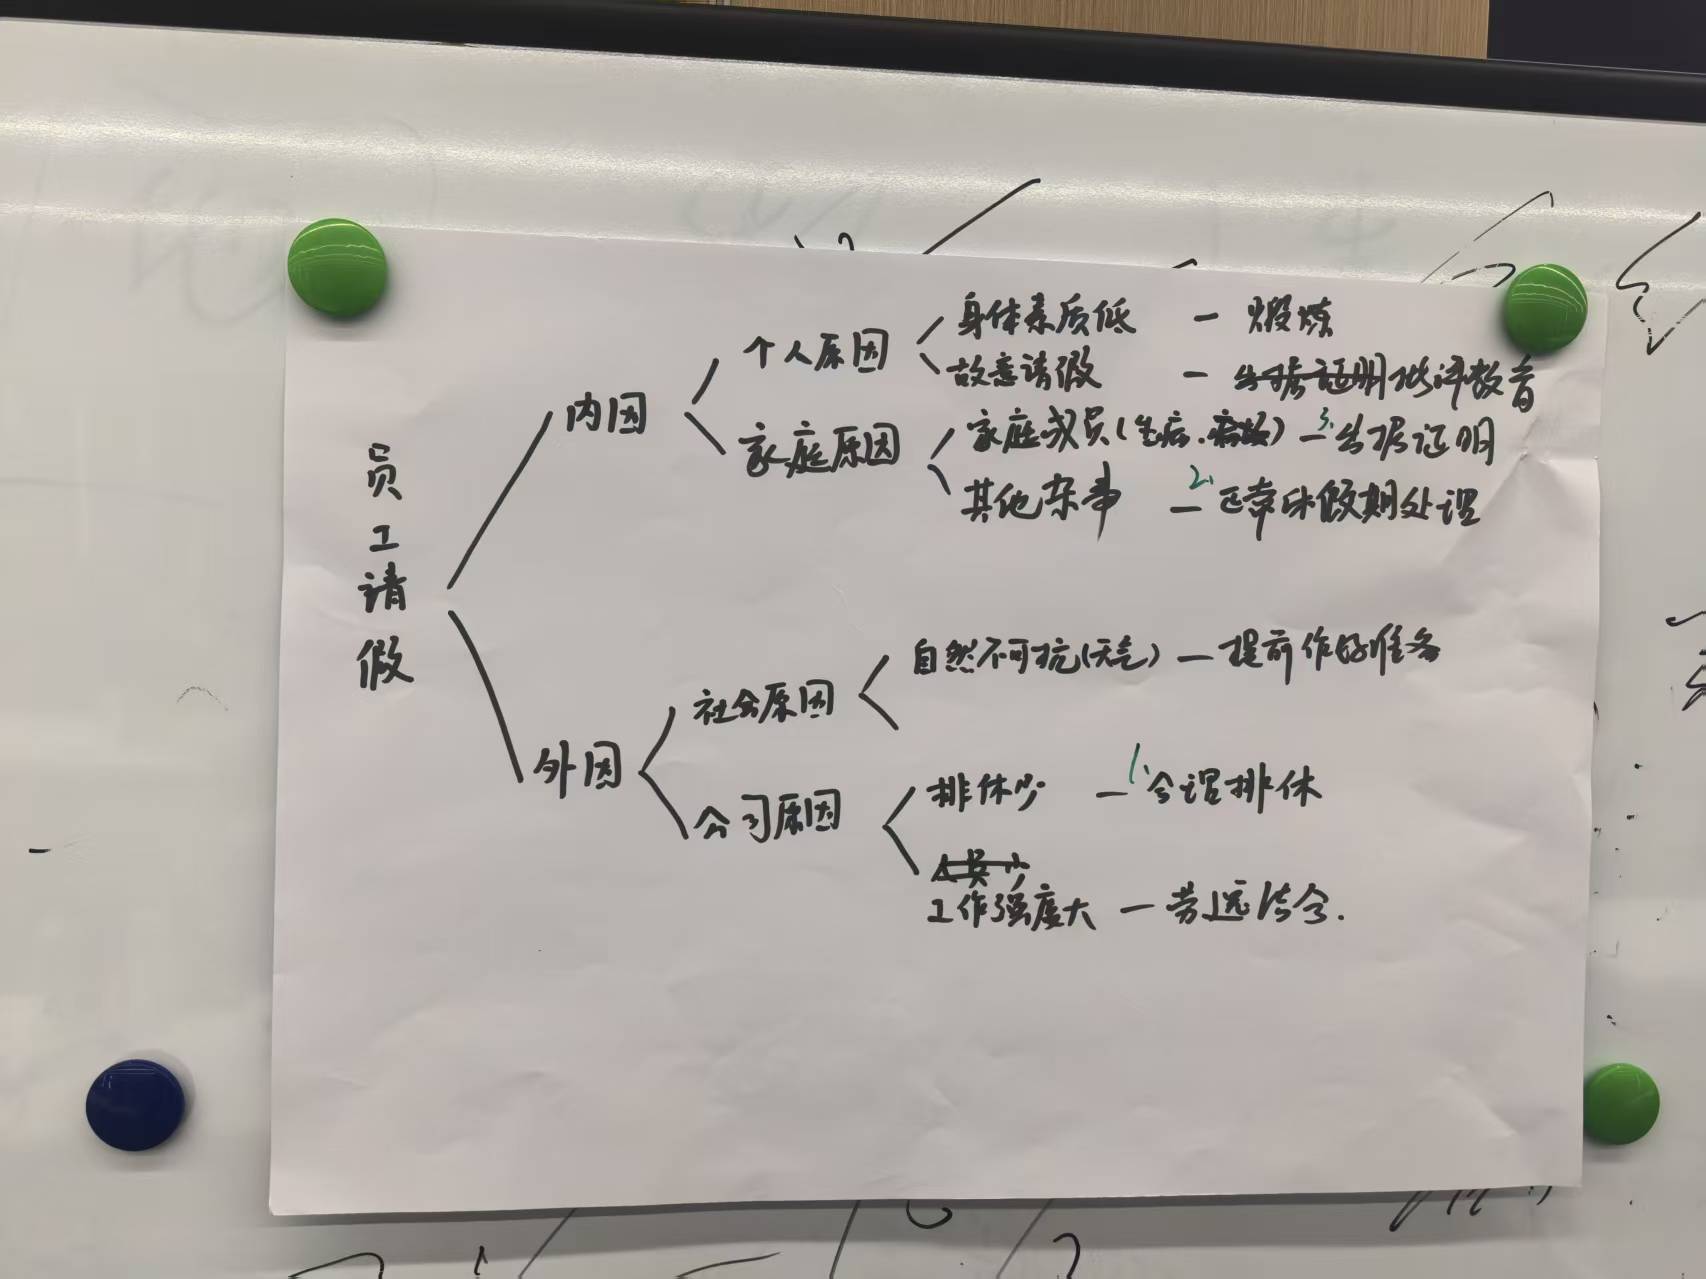 员工请假
内因
个人原因
身体素质低 — 煅炼
故意请假 — 出据证明批评教育
家庭原因
家庭成员(生病、) — 3.出据证明
其他杂事 — 2.正常休假期处理
外因
社会原因
自然不可抗(天气) — 提前作好准备
公司原因
排休少 — 1.合理排休
人员少
工作强度大 — 劳逸结合.